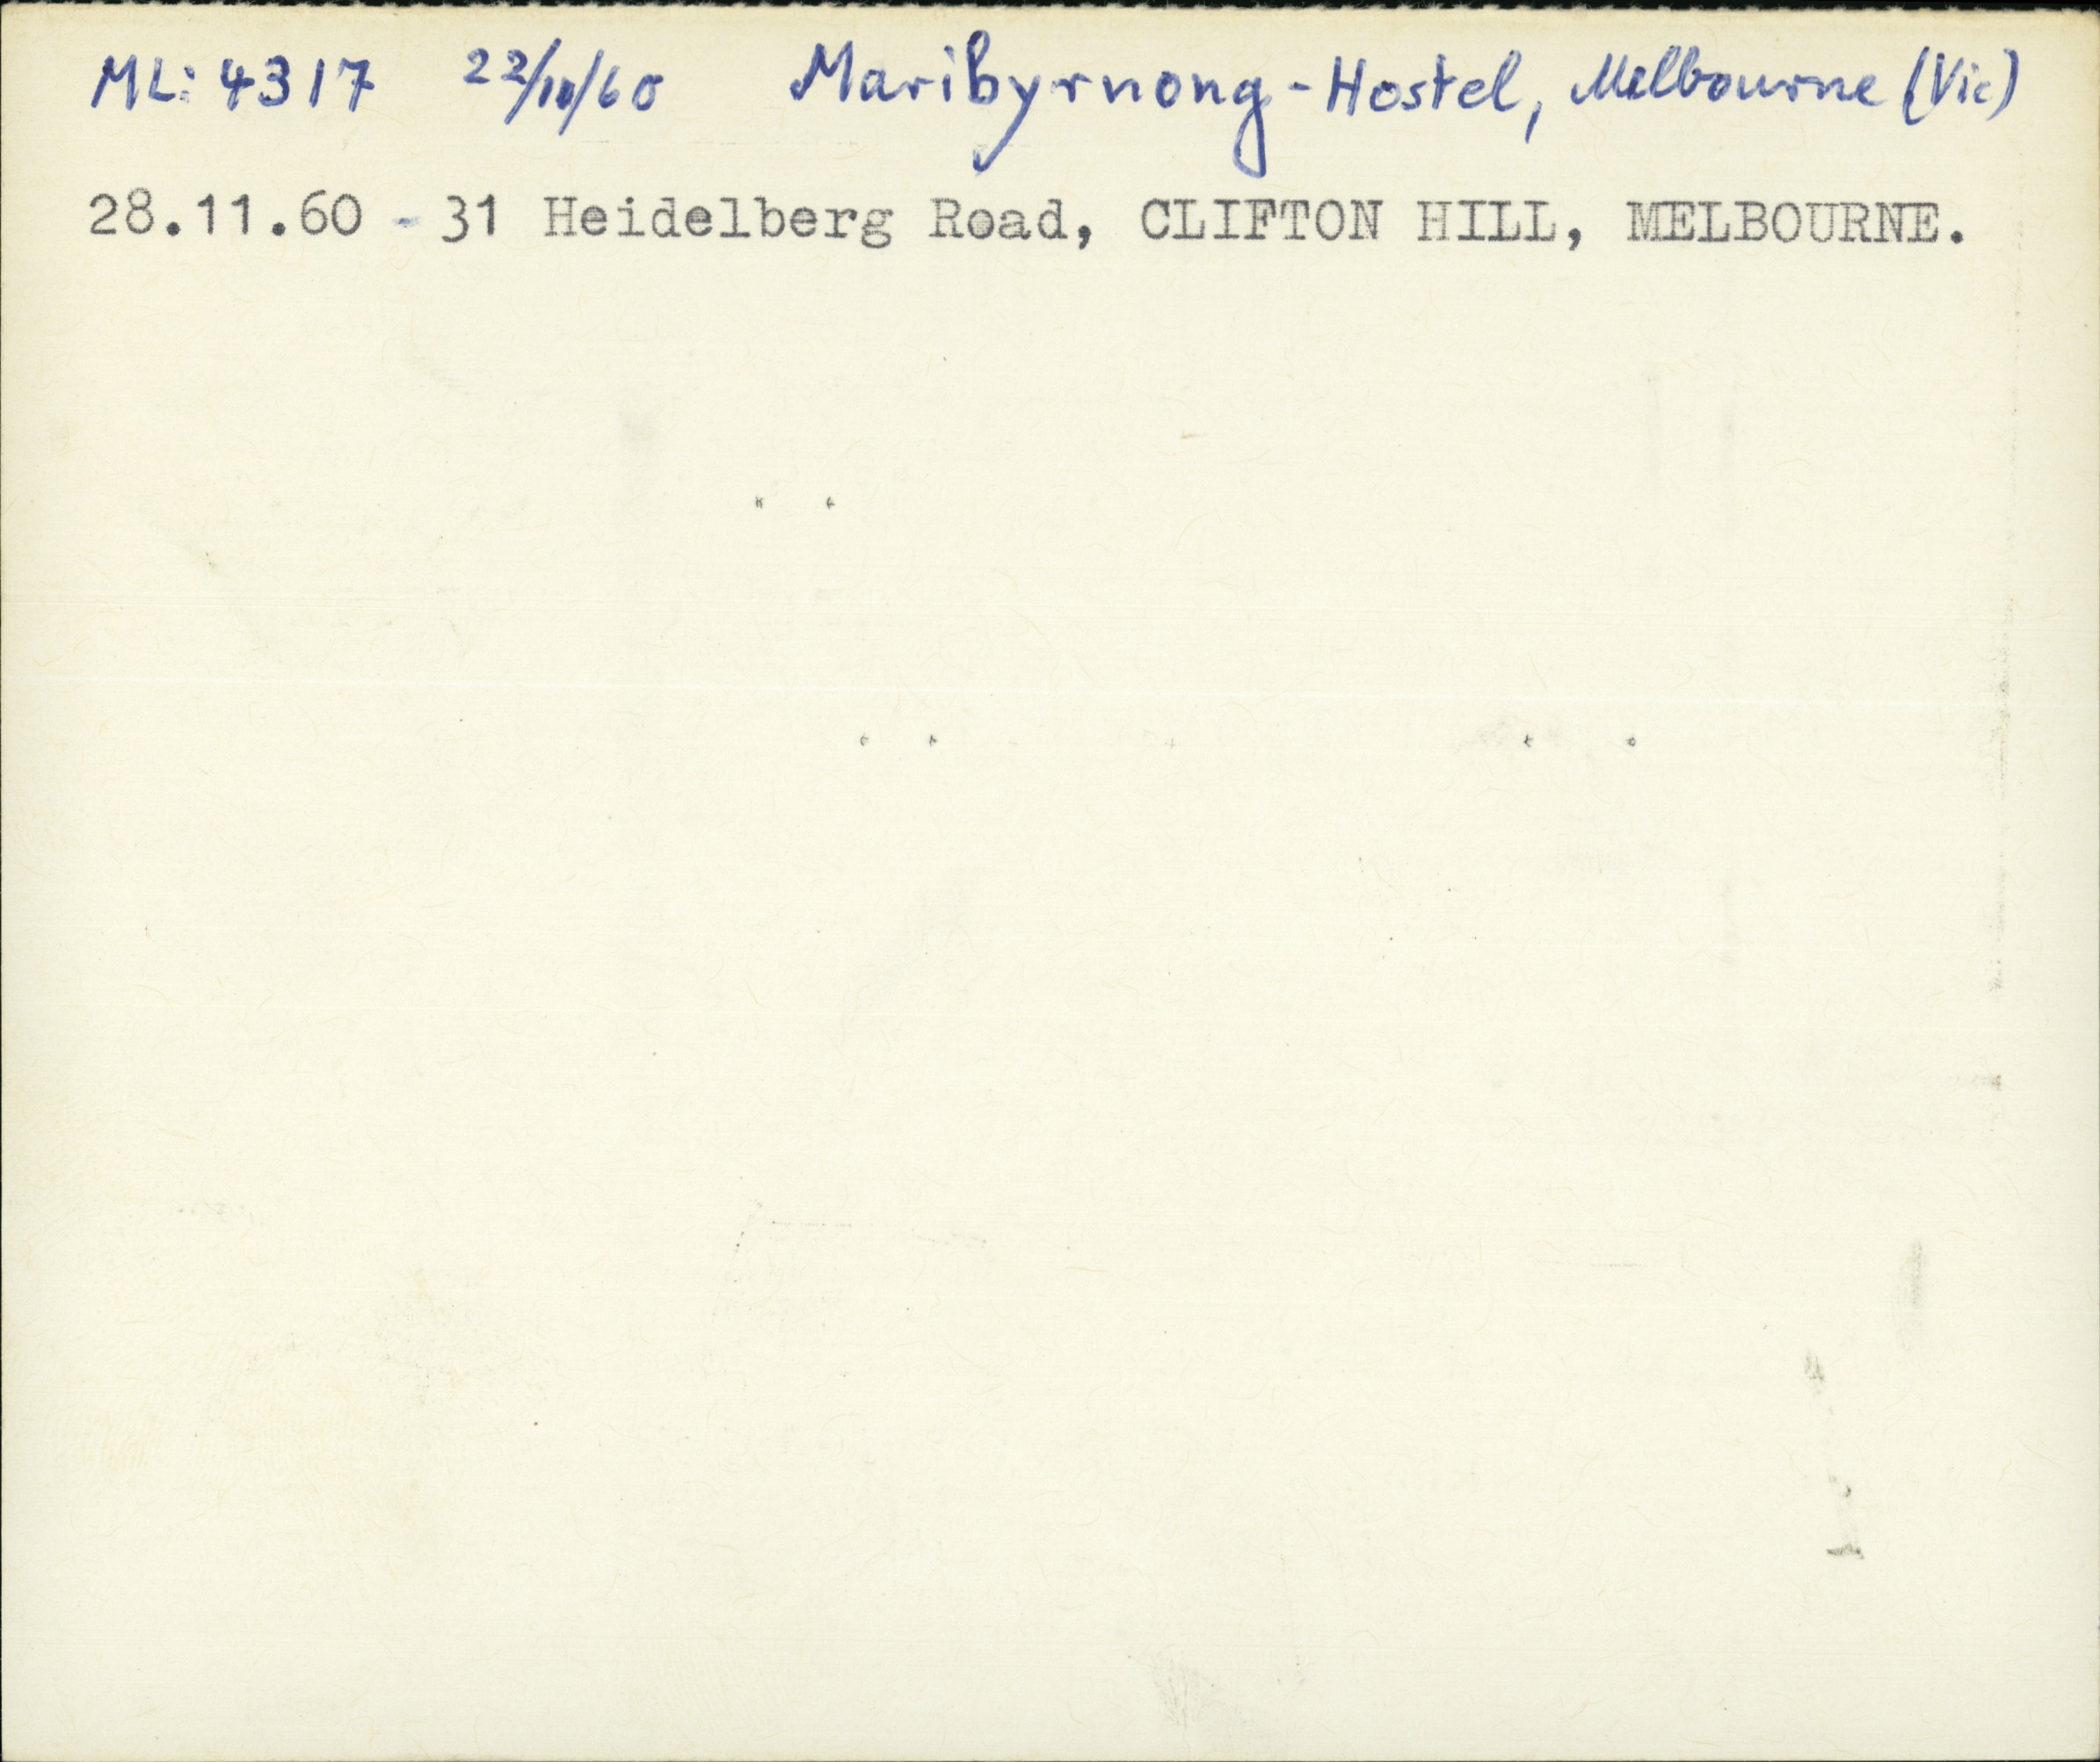 ML: 4317 22/10/60 Maribyrnong - Hostel, Melbourne (Vic)
28.11.60 - 31 Heidelberg Road, CLIFTON HILL, MELBOURNE.